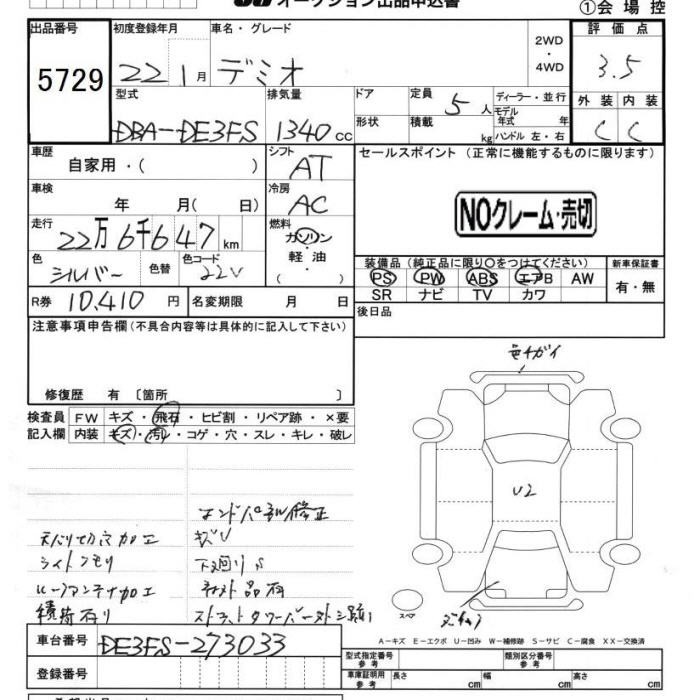 オークション出品申込書
①会場控
出品番号
5729
初度登録年月
22 1月
車名・グレード
デミオ
2WD
・
4WD
評価点
3.5
型式
DBA-DE3FS
排気量
1340cc
ドア
形状
定員 5人
積載 kg
ディーラー・並行
モデル年式 年
ハンドル 左・右
外装 内装
C C
車歴
自家用・( )
シフト
AT
セールスポイント (正常に機能するものに限ります)
車検
年 月( 日)
冷房
AC
NOクレーム・売切
走行
22万6千647km
燃料
ガソリン
・
軽油
( )
色
シルバー
色替
色コード
22V
装備品(純正品に限り○をつけてください)
PS PW ABS エアB AW
SR ナビ TV カワ
新車保証書
有・無
R券 10,410円
名変期限 月 日
後日品
注意事項申告欄(不具合内容等は具体的に記入して下さい)
修復歴 有〔箇所 〕
検査員
記入欄
FW キズ・飛石・ヒビ割・リペア跡・×要
内装 キズ・汚れ・コゲ・穴・スレ・キレ・破レ
色チガイ
U2
スペア
エンドパネル修正
キズU
下廻りS
天バリ切穴加工
ライトクモリ
ルーフアンテナ加工
積荷有り
A-キズ E-エクボ U-凹み W-補修跡 S-サビ C-腐食 XX-交換済
車台番号
DE3FS-273033
登録番号
型式指定番号
参考
類別区分番号
参考
車庫証明用
参考
長さ cm
幅 cm
高さ cm